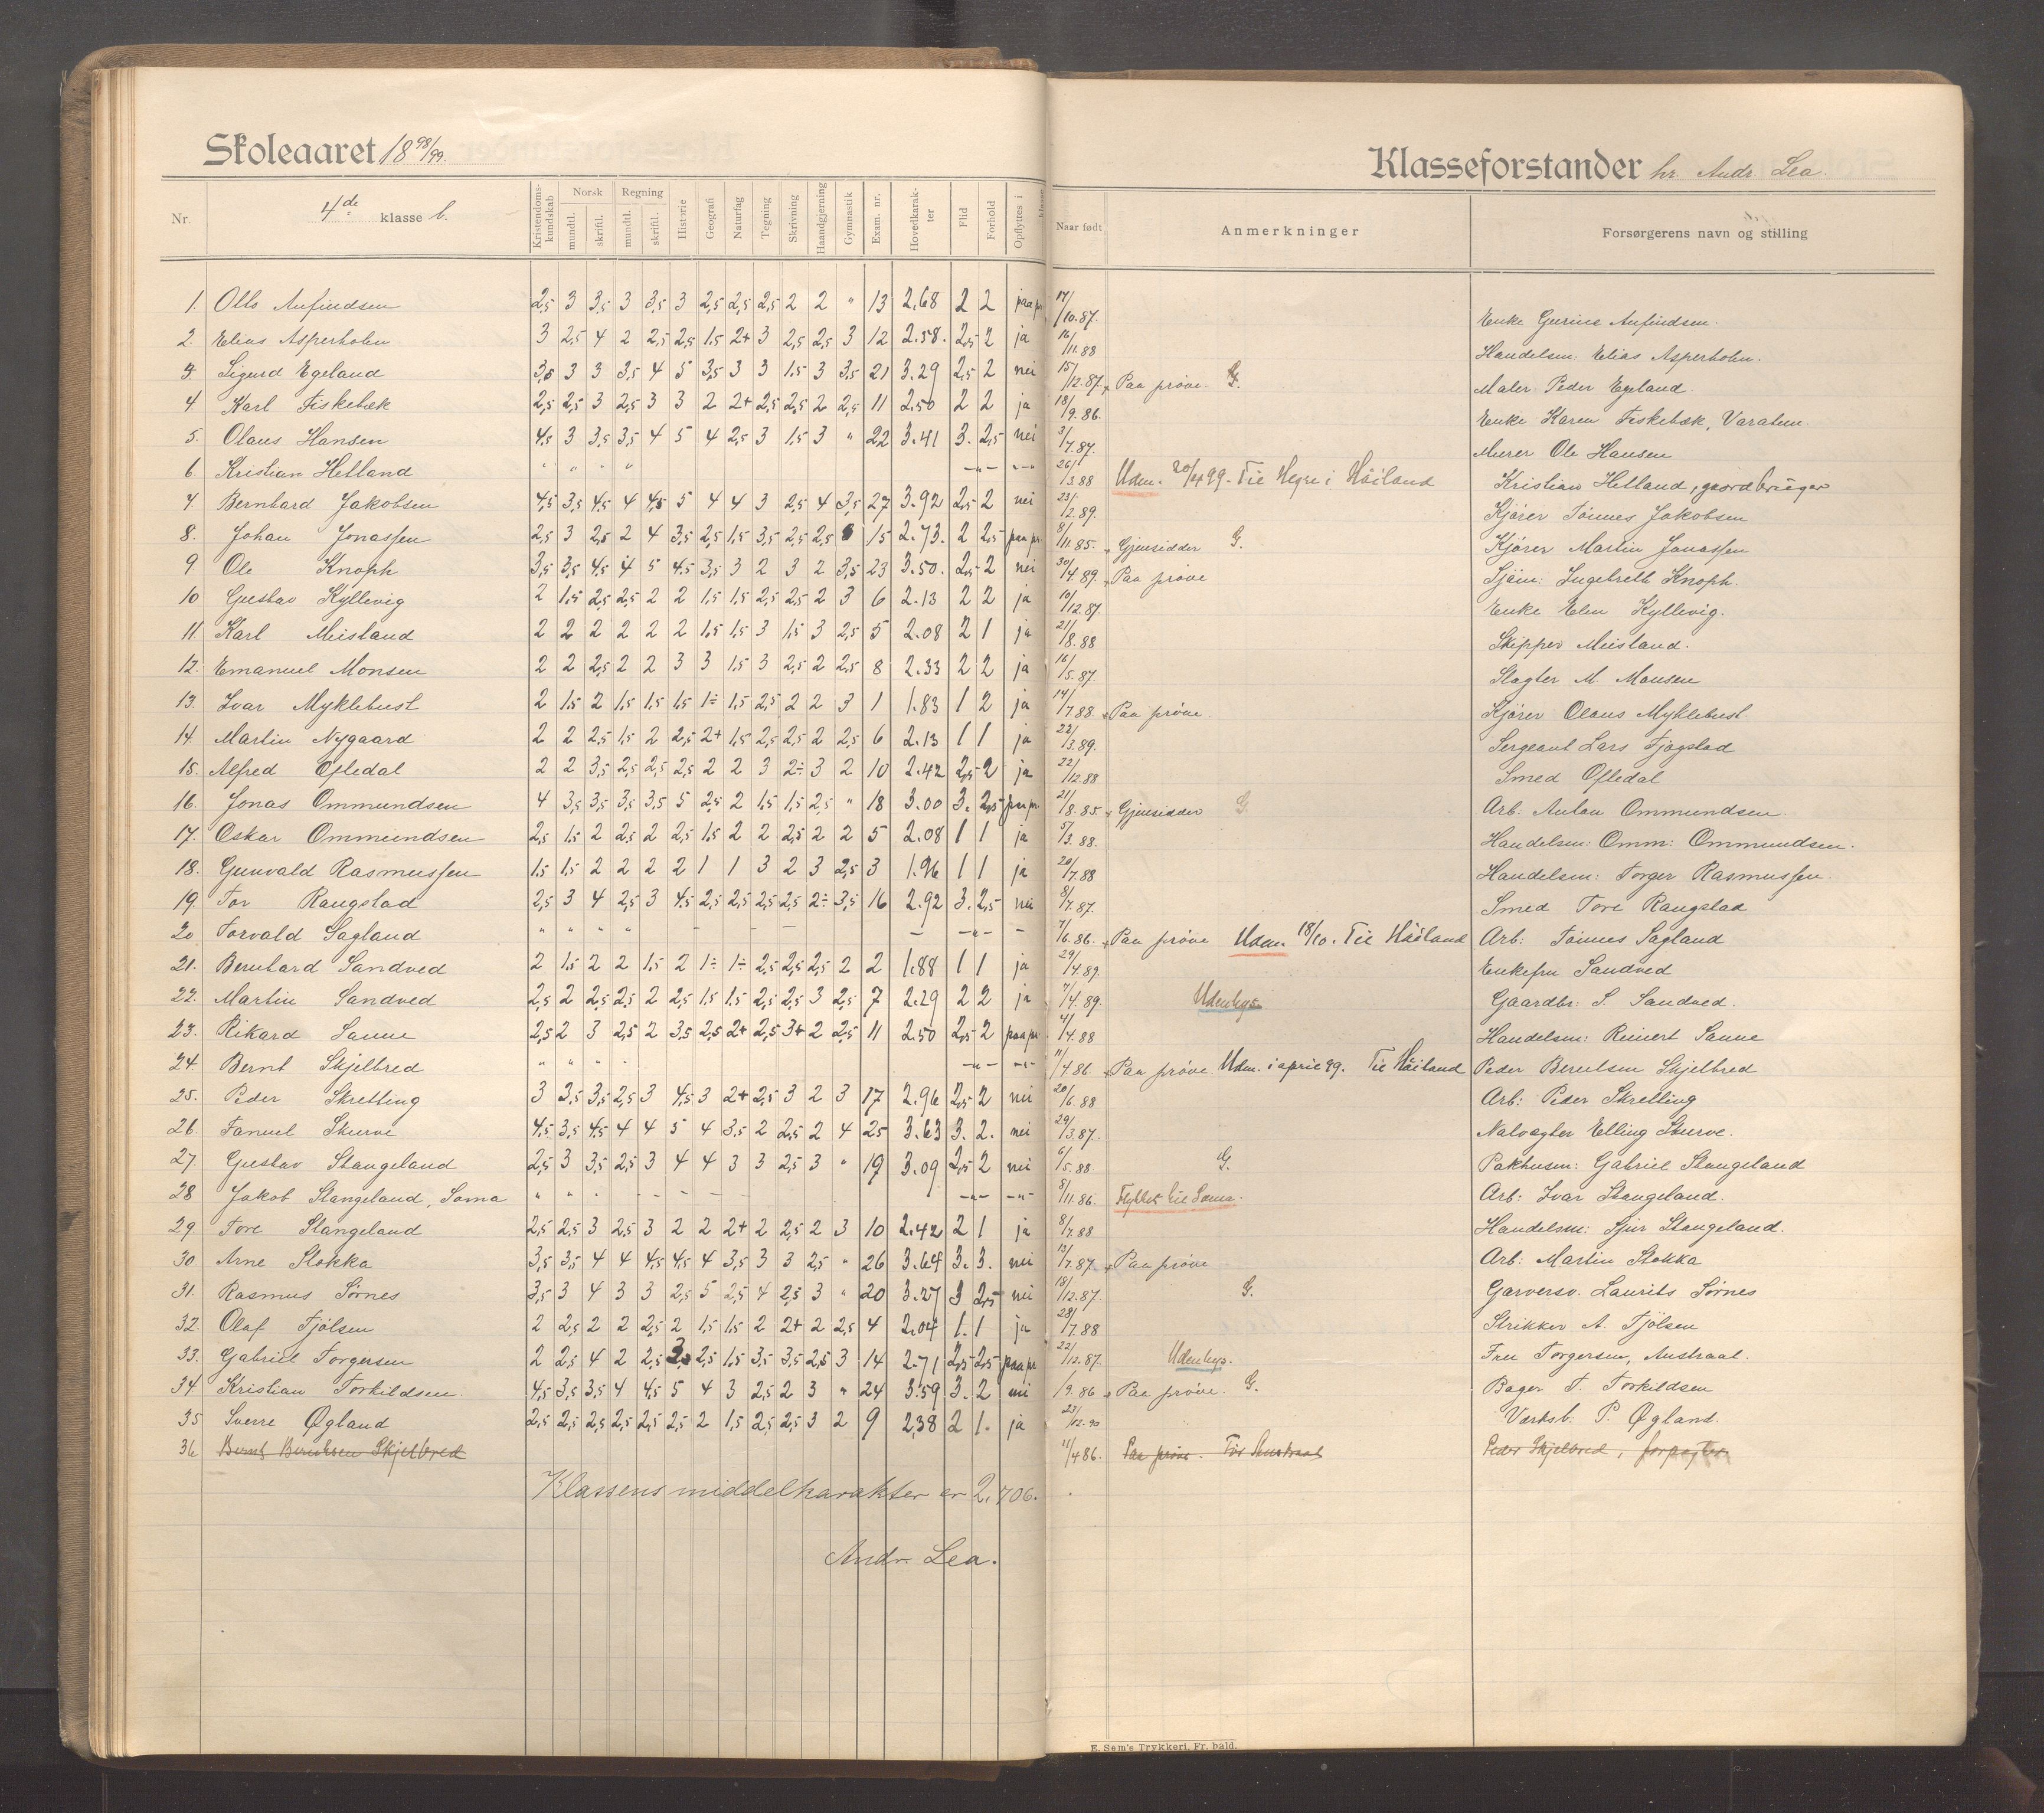 Skoleaaret 18 98/99.
Nr. 4de klasse b. Kristendomskundskab Norsk mundtl. skriftl. Regning mundtl. skriftl. Historie Geografi Naturfag Tegning Skrivning Haandgjerning Gymnastik Exam. nr. Hovedkarakter Flid Forhold Opflyttes i klasse
1. Olls Anfindsen 2,5 3 3,5 3 3,5 3 2,5 2,5 2,5 2 2 " 13 2.68 2 2 paa pr.
2. Elias Asperholm 3 2,5 4 2 2,5 2,5 1.5 2+ 3 2,5 2,5 3 12 2.58. 2,5 2 ja
3. Sigurd Egeland 3,5 3 3 3,5 4 5 3,5 3 3 1.5 3 3,5 21 3.29 2,5 2 nei
4. Karl Fiskebæk 2,5 2,5 3 2,5 3 3 2 2+ 2,5 2,5 2 2,5 11 2.50 2 2 ja
5. Olaus Hansen 4,5 3 3,5 3,5 4 5 4 2,5 3 1.5 3 " 22 3.41 3. 2,5 nei
6. Kristian Hetland " " " " –"– –"–
7. Bernhard Jakobsen 4,5 3,5 4,5 4 4,5 5 4 4 3 2,5 4 3,5 27 3.92 2,5 2 nei
8. Johan Jonassen 2,5 3 2,5 2 4 3,5 2,5 1.5 3,5 2,5 2,5 15 2.73. 2 2,5 paa pr.
9 Ole Knoph 3,5 3,5 4,5 4 5 4,5 3,5 3 2 3 2 3,5 23 3.50. 2,5 2 nei
10 Gustav Kyllevig 2 1.5 2,5 2,5 2 2 1,5 1,5 2,5 2,5 2 3 6 2.13 2 2 ja
11 Karl Meisland 2 2 2 2 2 2 1,5 1,5 3 1,5 3 2,5 5 2.08 2 1 ja
12. Emanuel Monsen 2 2 2,5 2 2 3 3 1.5 3 2,5 2 2,5 8 2.33 2 2 ja
13. Ivar Myklebust 2 1.5 2 1.5 1.5 1,5 1÷ 1.5 2,5 2 2 3 1 1.83 1 2 ja
14. Martin Nygaard 2 2 2,5 1.5 2 2,5 2+ 1.5 2,5 2,5 2 2,5 6 2.13 1 1 ja
15. Alfred Ofledal 2 2 3,5 2,5 2,5 2,5 2 2 3 2÷ 3 2 10 2.42 2,5 2 ja
16. Jonas Ommundsen 4 3,5 3,5 3,5 3,5 5 2,5 2 1.5 1,5 2,5 " 18 3.00 3. 2,5 paa pr.
17. Oskar Ommundsen 2,5 1.5 2 2,5 2 2,5 1.5 2 2 2,5 2 2 5 2.08 1 1 ja
18. Gunvald Rasmussen 1.5 1,5 2 2 2 2 1 1 3 2 3 2,5 3 1.96 1 1 ja
19. Tor Raugstad 2,5 3 4 2,5 3 4.5 2,5 2,5 2,5 2,5 2÷ 3,5 16 2.92 3. 2,5 nei
20 Torvald Sagland " " " " – – – – –"– –
21. Bernhard Sandved 2 1.5 2 2 1.5 2 1÷ 1÷ 2,5 2,5 2,5 2 2 1.88 1 1 ja
22. Martin Sandved 2,5 2 2,5 2,5 2 2,5 1.5 1.5 2,5 2,5 3 2,5 7 2.29 2 2 ja
23. Rikard Sanne 2,5 2 3 2,5 2 3,5 2,5 2+ 2,5 3+ 2 2,5 11 2.50 2,5 2 paa pr.
24. Bernt Skjelbred " " " " –"– –"–
25. Peder Skretting 3 3,5 3,5 2,5 3 4,5 3 2+ 2,5 3 2 3 17 2.96 2,5 2 nei
26. Fanuel Skurve 4,5 3,5 4,5 4 4 5 4 3,5 2 2,5 2 4 25 3.63 3. 2. nei
27. Gustav Stangeland 2,5 3 3,5 2,5 3 4 4 3 3 2,5 3 " 19 3.09 2,5 2 nei
28 Jakob Stangeland, Soma " " " – – – – –"– –"–
29. Tore Stangeland 2,5 2,5 3 2,5 3 2 2 2+ 2 2,5 2 3 10 2.42 2 1 ja
30. Arne Stokka 3,5 3,5 4 4 4,5 4,5 4 3,5 3 3 2,5 " 26 3.64 3. 3. nei
31. Rasmus Sörnes 3,5 3 4 3 3 2,5 5 2,5 4 2,5 3 " 20 3.27 3 2,5 nei
32. Olaf Tjölsen 2 2,5 2 2 2,5 2 1,5 1.5 2 2+ 2 2,5 4 2.04 1. 1 ja
33. Gabriel Torgersen 2 2,5 4 2 2,5 3,5 2,5 1.5 3,5 3,5 2,5 3 14 2.71 2,5 2,5 paa pr.
34. Kristian Torkildsen. 4,5 3,5 3,5 4 4,5 5 4 3 2,5 2 3 " 24 3.59 3. 2 nei
35 Sverre Øgland 2,5 2,5 2,5 2,5 2,5 2,5 2 1,5 2,5 2,5 3 2 9 2,38 2 1. ja
36 Bernt Berntsen Skjelbred
Klassens middelkarakter er 2.706.
Andr. Lea.
Klasseforstander hr. Andr. Lea.
Naar født Anmerkninger Forsørgerens navn og stilling
17/10.87. Enke Gurine Anfindsen.
16/11.88 Handelsm: Elias Asperholm.
15/12.87. Paa prøve. G. Maler Peder Egeland.
18/9.86. Enke Karen Fiskebæk, Varatun.
3/7.87. Murer Ole Hansen
26/3.88 Udm. 20/4 99. Til Hegre i Høiland Kristian Hetland, gaardbruger
23/12.89. Kjører Tönnes Jakobsen
8/11.85. Gjensidder G. Kjører Martin Jonassen
30/4.89. Paa prøve Sjöm: Ingebreth Knoph.
10/12.87. Enke Elen Kyllevig.
21/8.88 Skipper Meisland.
16/5.87. Slagter M. Monsen
14/7.88. Paa prøve. Kjører Olaus Myklebust
22/3.89. Sergeant Lars Fjogstad
22/12.88 Smed Ofledal
21/8.85. Gjensidder G. Arb. Anton Ommundsen.
5/3.88. Handelsm: Omm: Ommundsen.
20/7.88 Handelsm: Torger Rasmussen.
8/7.87. Smed Tore Raugstad
7/6.86. Paa prøve Udm. 18/10. Til Høiland Arb: Tönnes Sagland
29/4.89. Enkefru Sandved
7/4.89. Udenbys Gaardbr: S. Sandved.
4/4.88 Handelsm: Reinert Sanne
11/4.86 Paa prøve. Udm. i april 99. Til Høiland Peder Berntsen Skjelbred
20/6.88 Arb: Peder Skretting
29/3.87. Nalvagter Elling Skurve.
6/5.88. G. Pakhusm: Gabriel Stangeland
8/11.86. Flyttet til Soma. Arb: Ivar Stangeland.
8/7.88 Handelsm: Sjur Stangeland.
13/7.87. Paa prøve Arb: Martin Stokka
18/12.87. G. Garversv. Laurits Sörnes
28/7.88 Strikker A. Tjölsen
22/12.87. Udenbys. Fru Torgersen, Austraat.
/9.86 Paa prøve. G. Bager T. Torkildsen
23/12.90 Værksb: P. Øgland.
11/4 86. Paa prøve. Peder Skjelbred, forpagter
E. Sem's Trykkeri, Fr. hald.